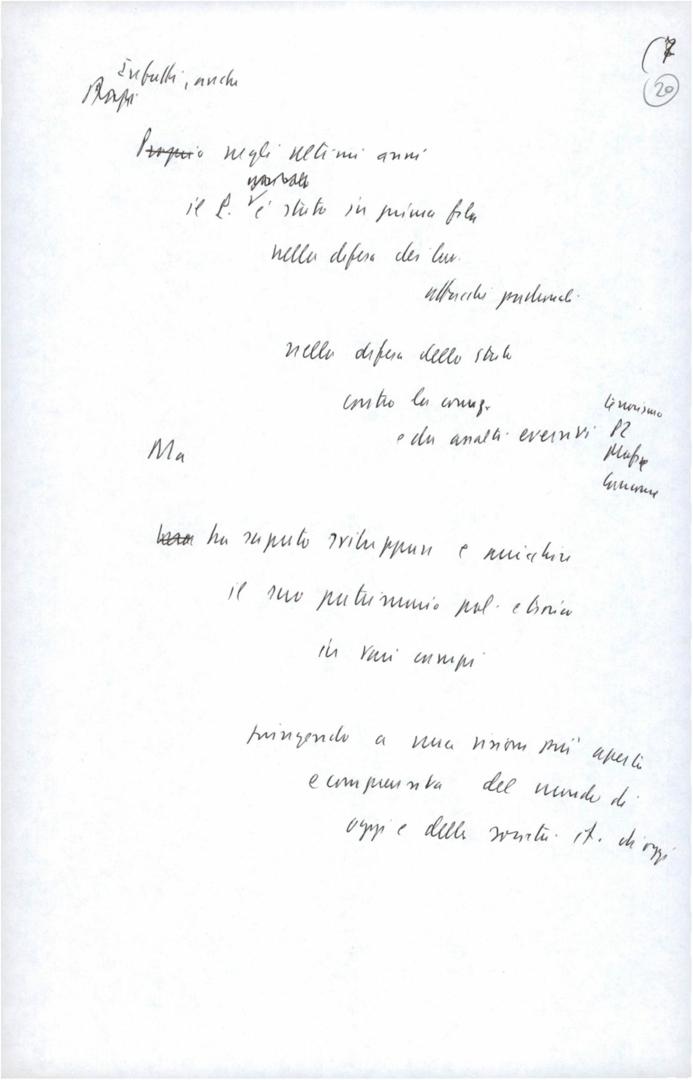 (7
20
Infatti, anche
Proprio negli ultimi anni
il P. è stato in prima fila
nella difesa dei lav.
attacchi padronali
nella difesa dello stato
contro la corruz.
e da assalti eversivi
terrorismo
P2
Mafia
Camorra
Ma
ha saputo sviluppare e arricchire
il suo patrimonio pol. e teorico
in vari campi
giungendo a una visione più aperta
e comprensiva del mondo di
oggi e della società it. di oggi